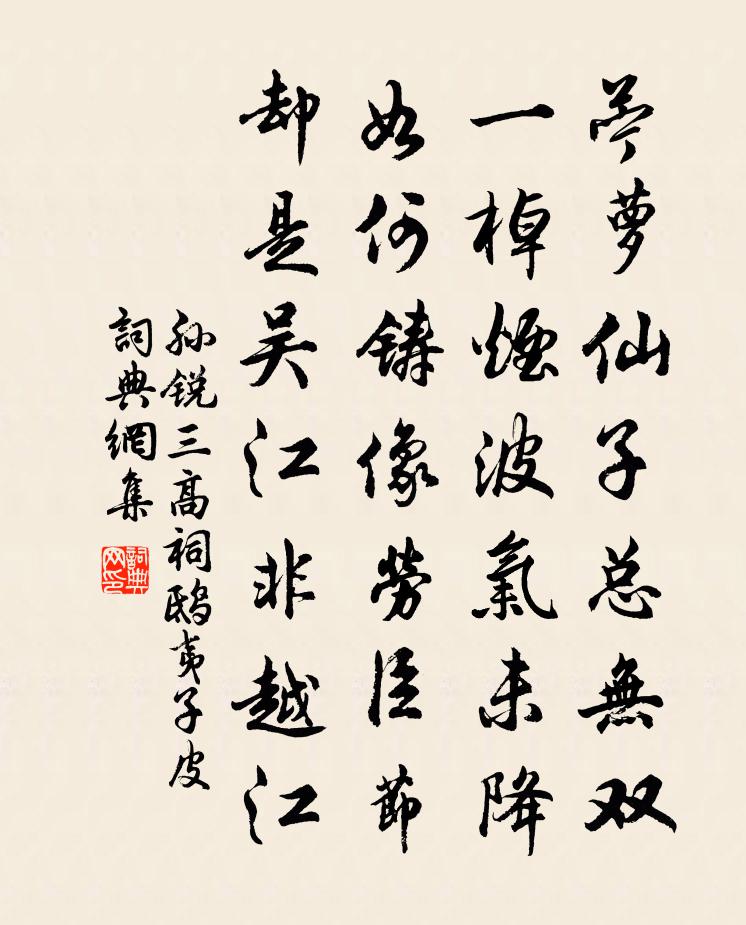 苧萝仙子总無双
一棹煙波氣未降
如何铸像勞臣節
却是吴江非越江
孙锐三高祠鸱夷子皮
詞典網集
詞典网印